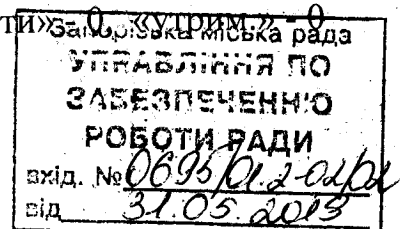 ти» - 0, «утрим.» - 0
Запорізька міська рада
УПРАВЛІННЯ ПО
ЗАБЕЗПЕЧЕННЮ
РОБОТИ РАДИ
вхід. № 0695/01.2-02/02
від 31.05.2013